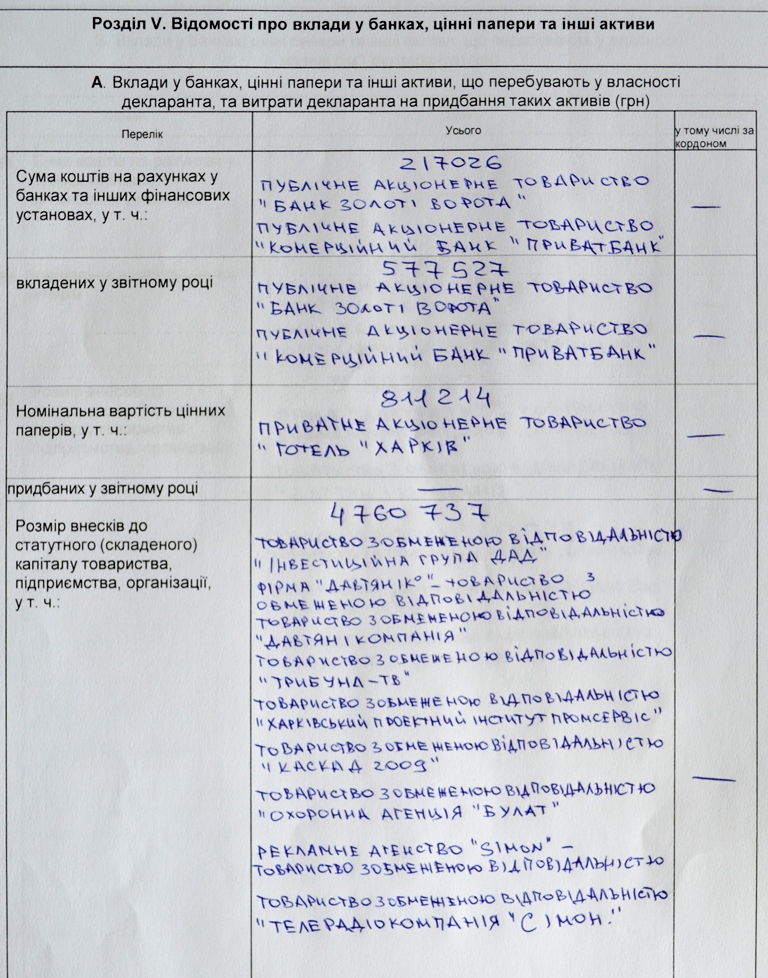 Розділ V. Відомості про вклади у банках, цінні папери та інші активи
А. Вклади у банках, цінні папери та інші активи, що перебувають у власності
декларанта, та витрати декларанта на придбання таких активів (грн)
Перелік
Усього
у тому числі за
кордоном
Сума коштів на рахунках у
банках та інших фінансових
установах, у т. ч.:
217026
ПУБЛІЧНЕ АКЦІОНЕРНЕ ТОВАРИСТВО
"БАНК ЗОЛОТІ ВОРОТА"
ПУБЛІЧНЕ АКЦІОНЕРНЕ ТОВАРИСТВО
"КОМЕРЦІЙНИЙ БАНК "ПРИВАТБАНК"
—
вкладених у звітному році
577527
ПУБЛІЧНЕ АКЦІОНЕРНЕ ТОВАРИСТВО
"БАНК ЗОЛОТІ ВОРОТА"
ПУБЛІЧНЕ АКЦІОНЕРНЕ ТОВАРИСТВО
"КОМЕРЦІЙНИЙ БАНК "ПРИВАТБАНК"
—
Номінальна вартість цінних
паперів, у т. ч.:
811214
ПРИВАТНЕ АКЦІОНЕРНЕ ТОВАРИСТВО
"ГОТЕЛЬ "ХАРКІВ"
—
придбаних у звітному році
—
—
Розмір внесків до
статутного (складеного)
капіталу товариства,
підприємства, організації,
у т. ч.:
4760 737
ТОВАРИСТВО З ОБМЕЖЕНОЮ ВІДПОВІДАЛЬНІСТЮ
"ІНВЕСТИЦІЙНА ГРУПА ДАД"
ФІРМА "ДАВТЯН ІКº" – ТОВАРИСТВО З
ОБМЕЖЕНОЮ ВІДПОВІДАЛЬНІСТЮ
ТОВАРИСТВО З ОБМЕЖЕНОЮ ВІДПОВІДАЛЬНІСТЮ
"ДАВТЯН І КОМПАНІЯ"
ТОВАРИСТВО З ОБМЕЖЕНОЮ ВІДПОВІДАЛЬНІСТЮ
"ТРИБУНА-ТВ"
ТОВАРИСТВО З ОБМЕЖЕНОЮ ВІДПОВІДАЛЬНІСТЮ
"ХАРКІВСЬКИЙ ПРОЕКТНИЙ ІНСТИТУТ ПРОМСЕРВІС"
ТОВАРИСТВО З ОБМЕЖЕНОЮ ВІДПОВІДАЛЬНІСТЮ
"КАСКАД 2009"
ТОВАРИСТВО З ОБМЕЖЕНОЮ ВІДПОВІДАЛЬНІСТЮ
"ОХОРОННА АГЕНЦІЯ "БУЛАТ"
РЕКЛАМНЕ АГЕНСТВО "SIMON" –
ТОВАРИСТВО З ОБМЕЖЕНОЮ ВІДПОВІДАЛЬНІСТЮ
ТОВАРИСТВО З ОБМЕЖЕНОЮ ВІДПОВІДАЛЬНІСТЮ
"ТЕЛЕРАДІОКОМПАНІЯ "СІМОН."
—